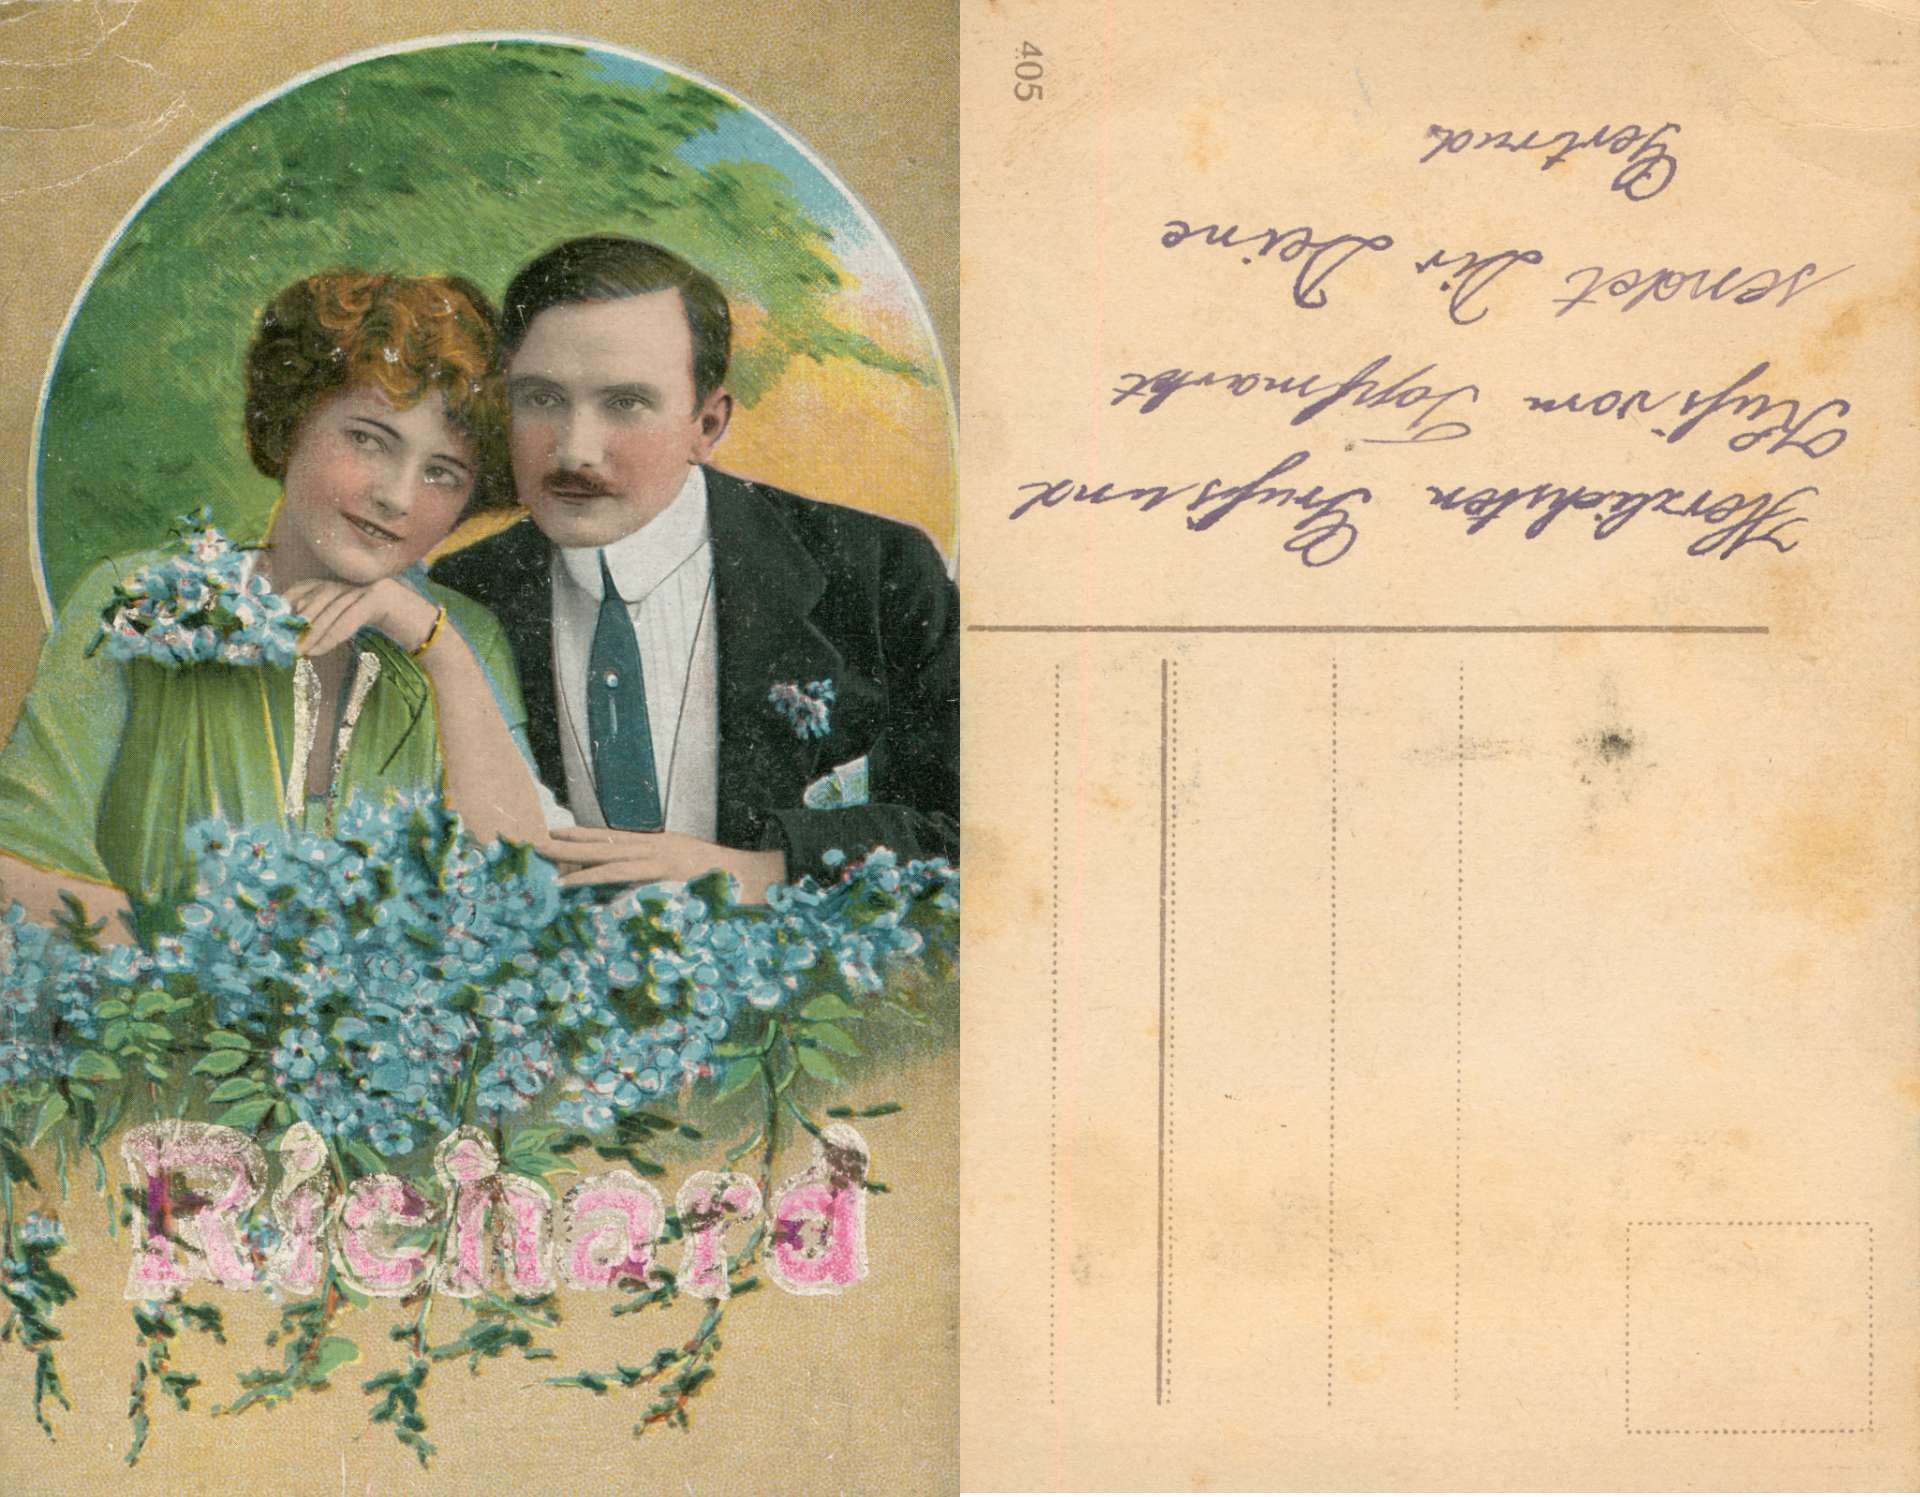 Richard
405
Herzlichsten Gruß und
Kuß vom Topfmarkt
sendet Dir Deine
Gertrud